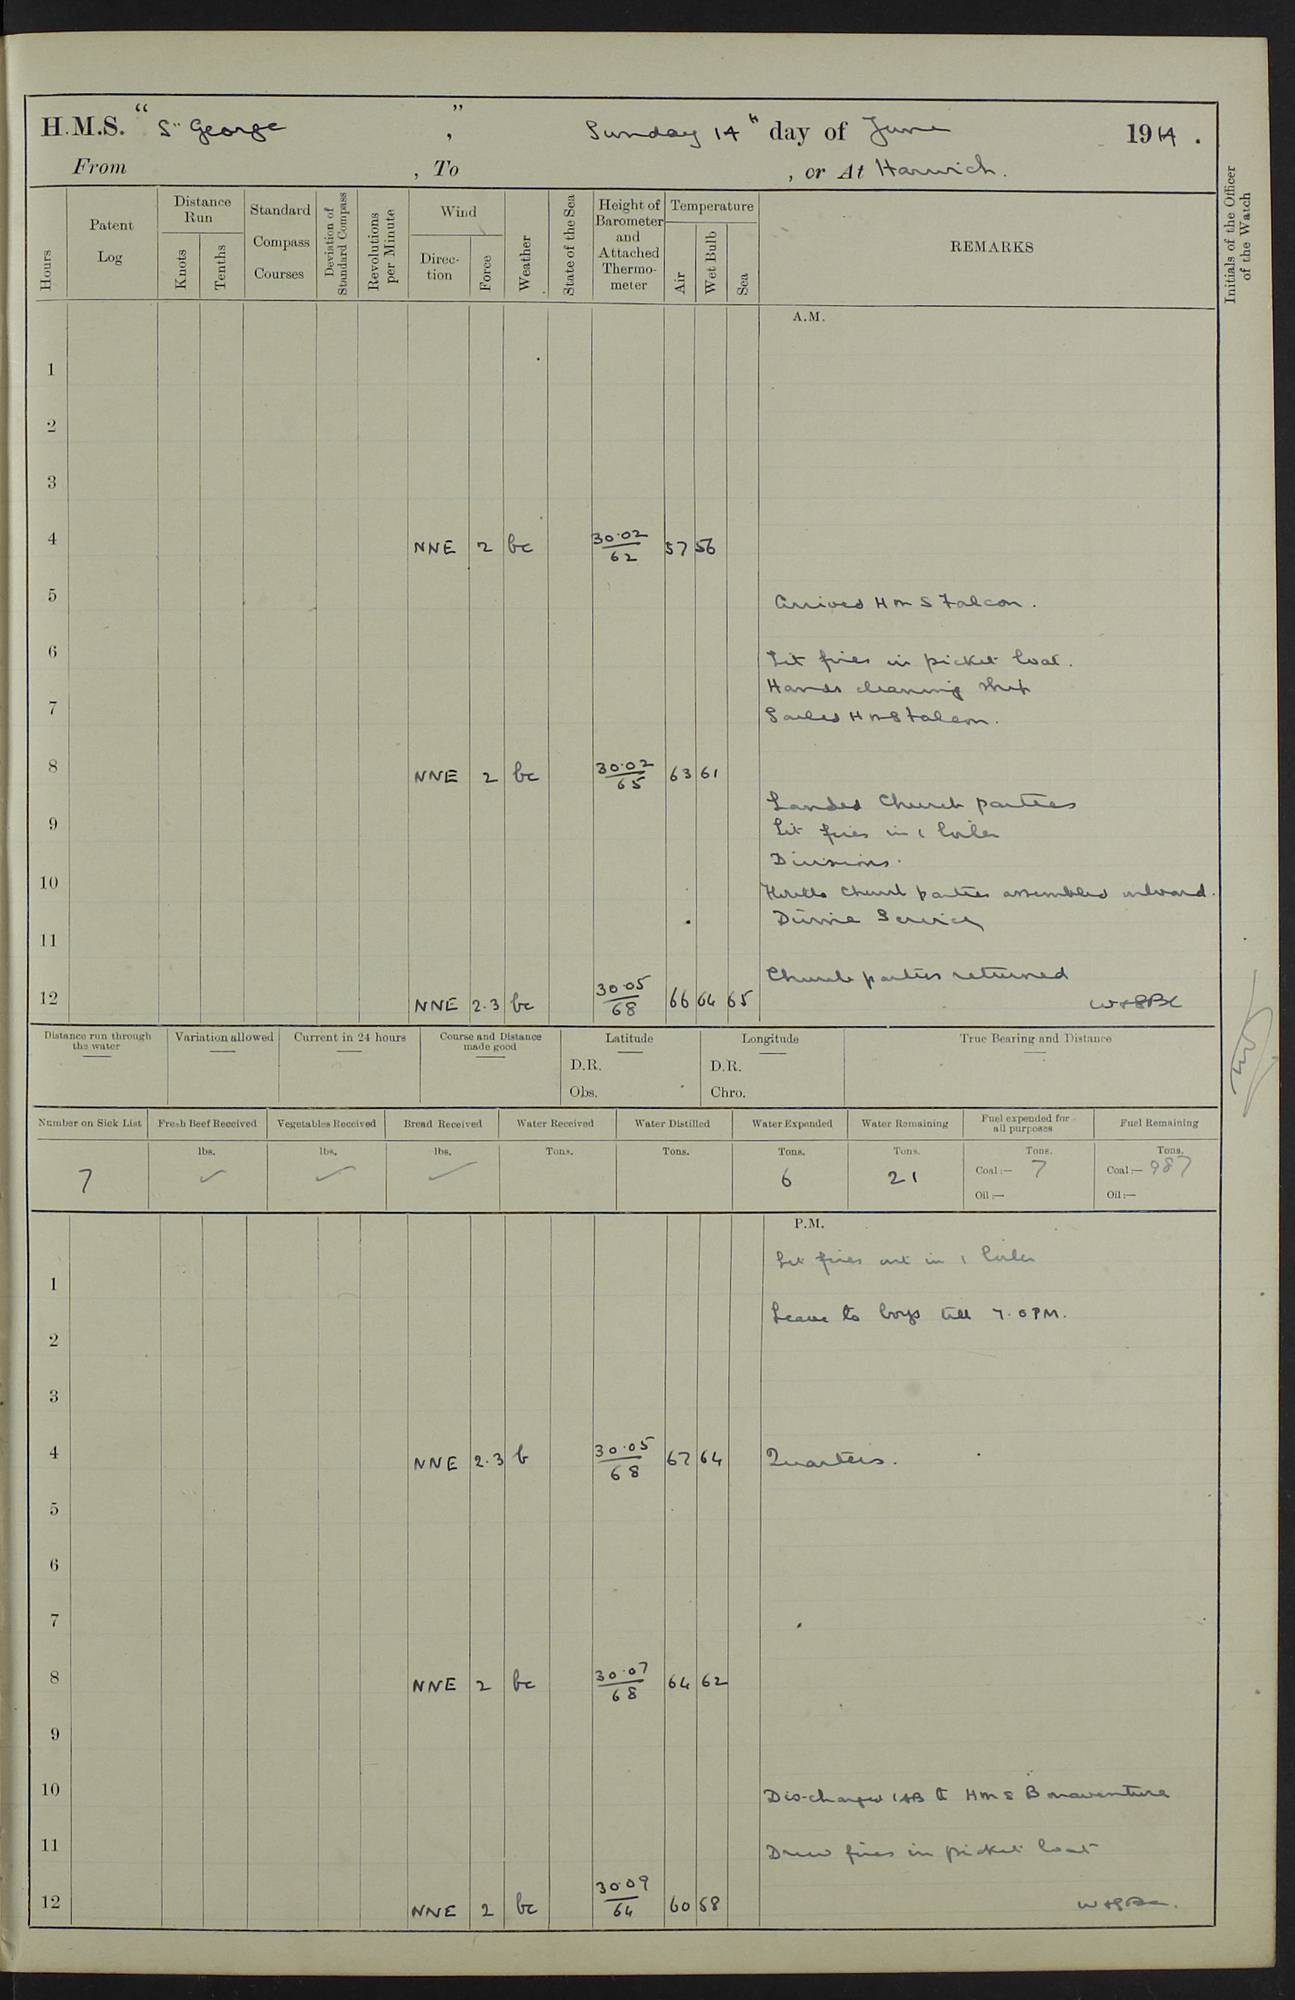 H.M.S. “ St George ” , Sunday 14th day of June 1914 .
From , To , or At Harwich.
Hours
Patent Log
Distance Run
Knots
Tenths
Standard Compass Courses
Deviation of Standard Compass
Revolutions per Minute
Wind
Direction
Force
Weather
State of the Sea
Height of Barometer and Attached Thermometer
Temperature
Air
Wet Bulb
Sea
REMARKS
Initials of the Officer of the Watch
A.M.
1
2
3
4 NNE 2 bc 30.02/62 57 56
5 Arrived HMS Falcon.
6 Lit fires in picket boat.
Hands cleaning ship
7 Sailed HMS Falcon.
8 NNE 2 bc 30.02/65 63 61
Landed Church parties
9 Lit fires in 1 boiler
Divisions.
10 Church parties assembled onboard.
Divine Service
11
Church parties returned
12 NNE 2.3 bc 30.05/68 66 64 65
Distance run through the water
Variation allowed
Current in 24 hours
Course and Distance made good
Latitude
D.R.
Obs.
Longitude
D.R.
Chro.
True Bearing and Distance
Number on Sick List
Fresh Beef Received
Vegetables Received
Bread Received
Water Received
Water Distilled
Water Expended
Water Remaining
Fuel expended for all purposes
Fuel Remaining
lbs. lbs. lbs. Tons. Tons. Tons. Tons. Tons. Tons.
7 ✓ ✓ ✓ 6 21 Coal:— 7 Coal:— 987
Oil:— Oil:—
P.M.
Let fires out in 1 boiler
1
Leave to boys till 7.0 PM.
2
3
4 NNE 2.3 b 30.05/68 67 64 Quarters.
5
6
7
8 NNE 2 bc 30.07/68 64 62
9
10 Discharged 1 AB to HMS Bonaventure
11 Drew fires in picket boat
12 NNE 2 bc 30.09/64 60 58